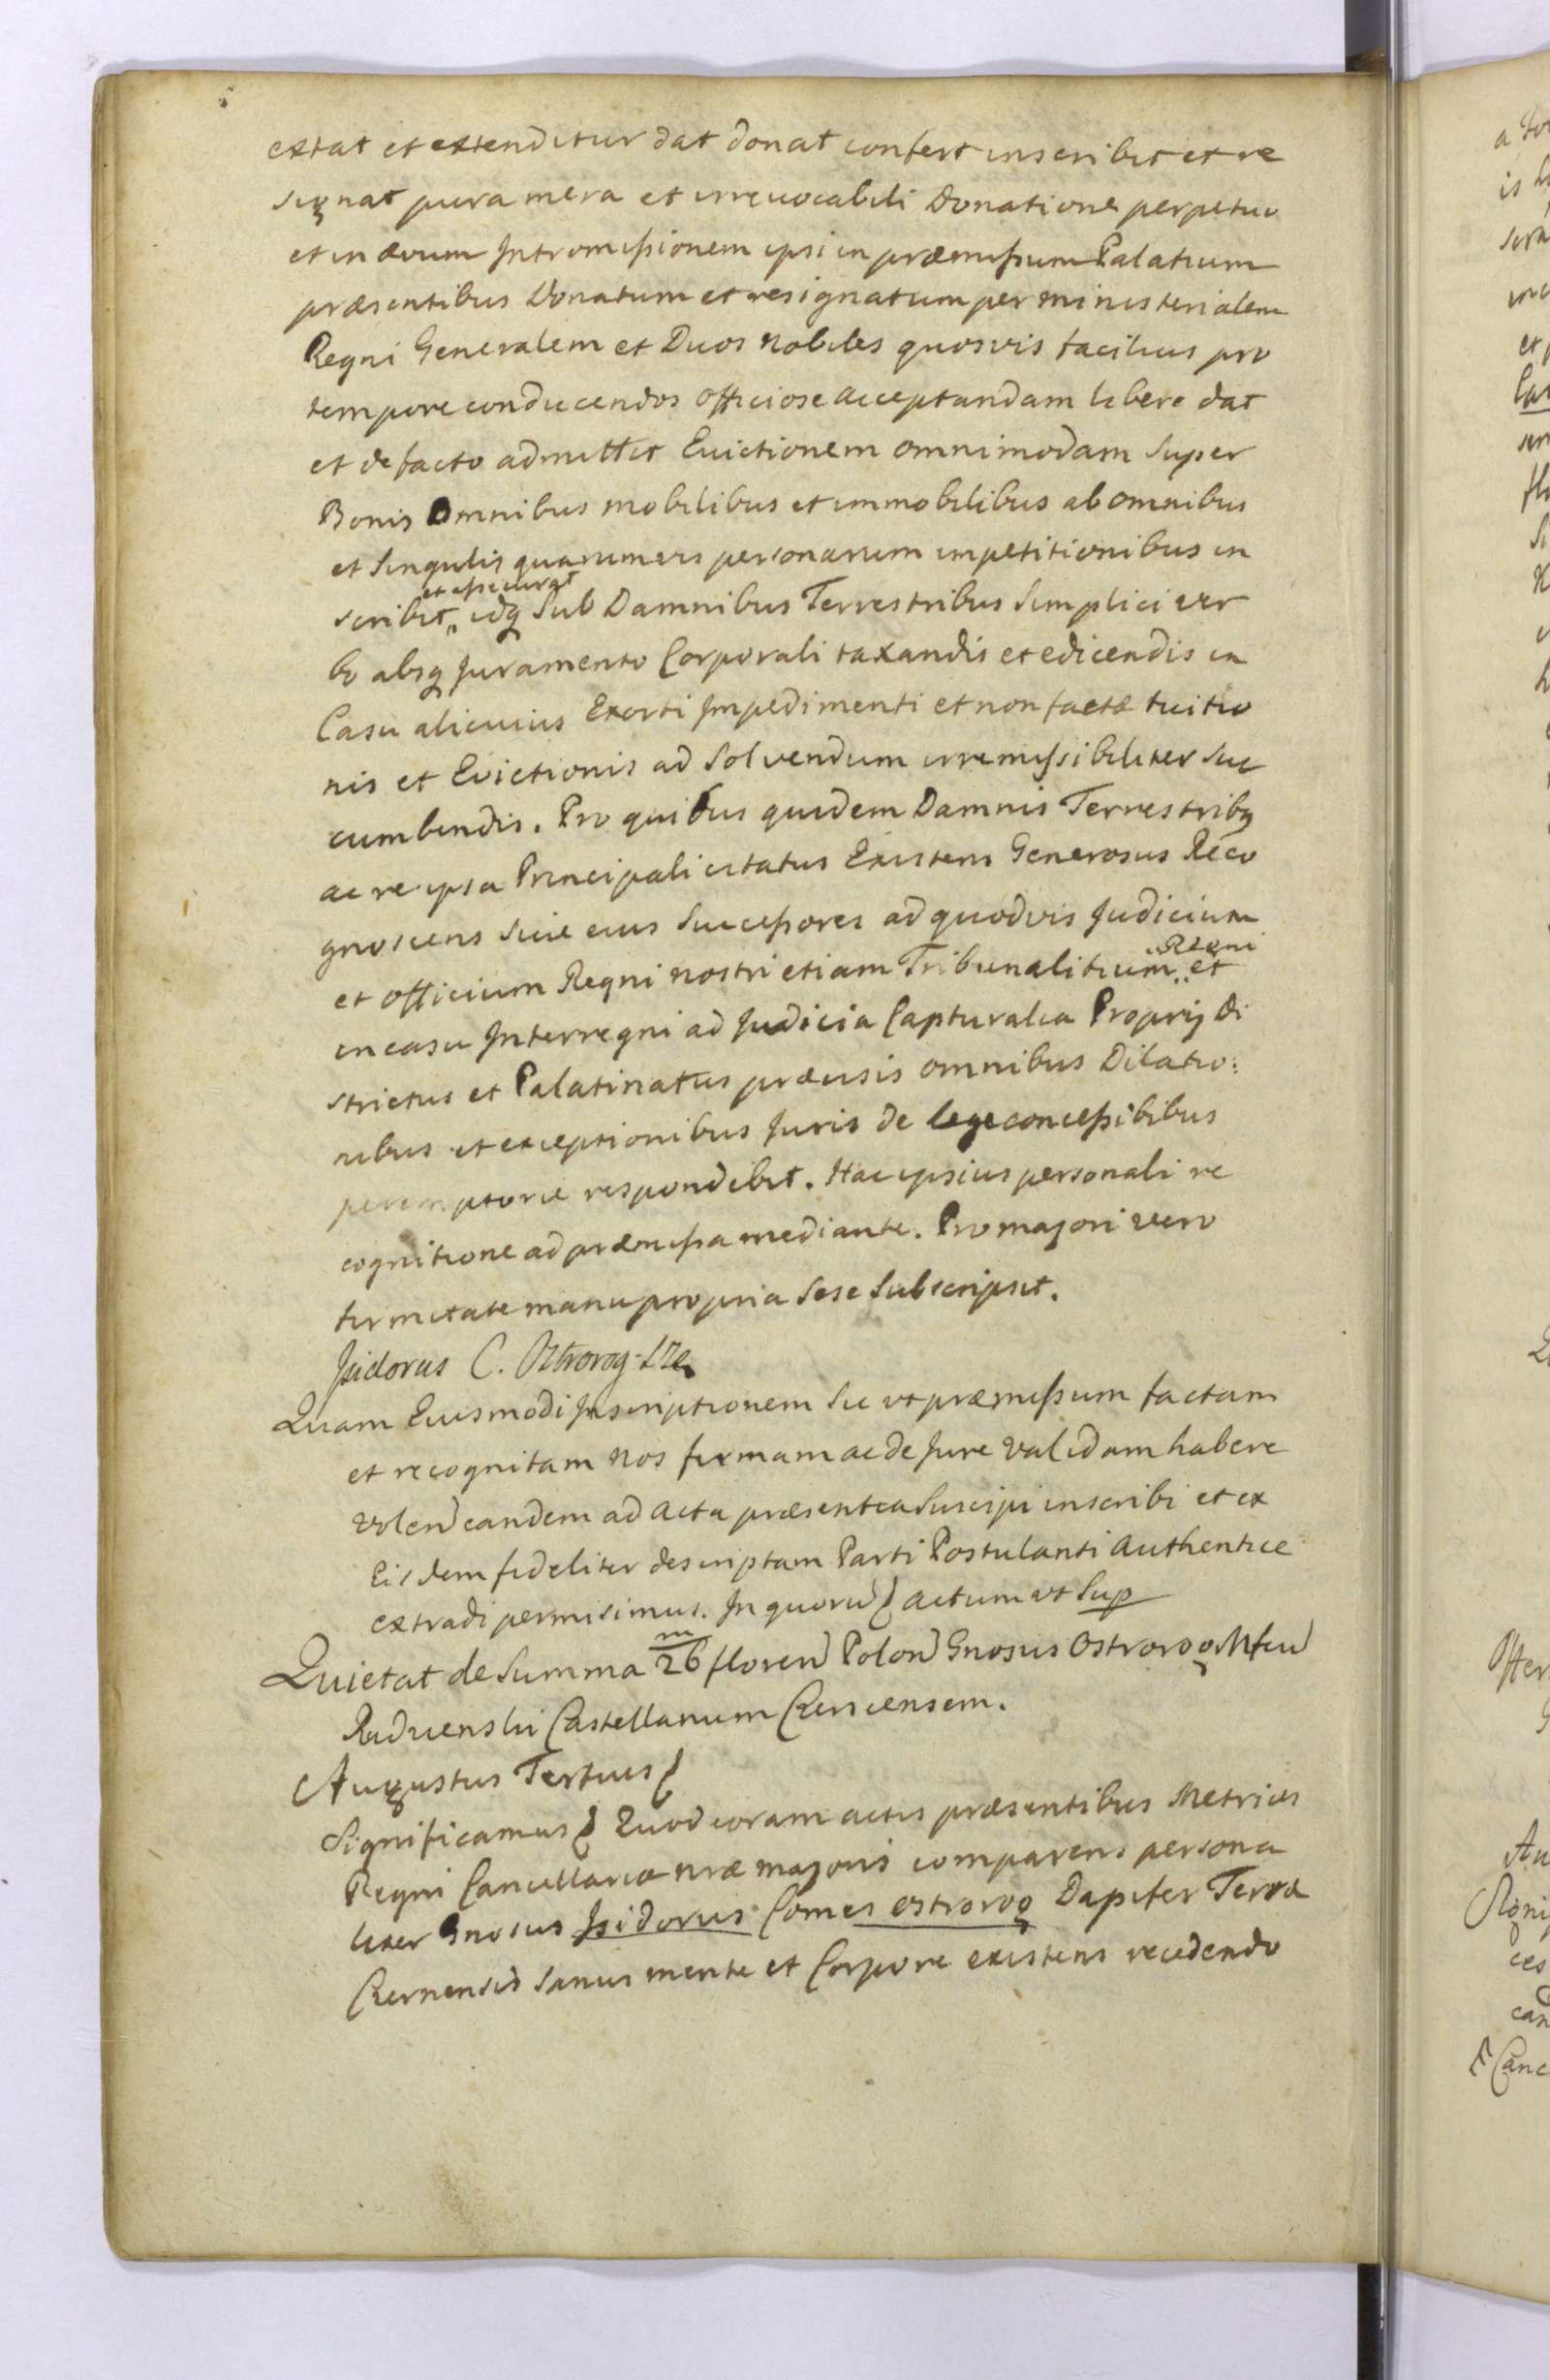 extat et extenditur dat donat confert inscribit et re
signat pura mera et irrevocabili Donatione perpetuo
et in ævum Intromissionem ipsi in præmissum Palatium
præsentibus Donatum et resignatum per ministerialem
Regni Generalem et Duos nobiles quosvis facilius pro
tempore conducendos officiose acceptandam libere dat
et de facto admittit Evictionem omnimodam super
Bonis Omnibus mobilibus et immobilibus ab omnibus
et singulis quarumvis personarum impetitionibus in
et assecurat
scribit,, idq sub Damnibus Terrestribus simplici ver
bo absq Juramento Corporali taxandis et edicendis in
Casu alicuius Exorti Impedimenti et non factæ tuitio
nis et Evictionis ad solvendum irremissibiliter suc
cumbendis. Pro quibus quidem Damnis Terrestribq
ac re ipsa Principali citatus Existens Generosus Reco
gnoscens sive eius successores ad quodvis Judicium
Regni
et officium Regni nostri etiam Tribunalitium,, et
in casu Interregni ad Judicia Capturalia Proprij Di
strictus et Palatinatus præcisis omnibus Dilatio:
nibus et exceptionibus Juris de lege concessibibus
peremptorie respondebit. Hac ipsius personali re
cognitione ad præmissa mediante. Pro majori vero
firmitate manu propria sese subscripsit.
Isidorus C. Osztrorog
Quam Eiusmodi Inscriptionem sic ut præmissum factam
et recognitam nos firmam ac de Jure validam habere
volen eandem ad acta præsentia suscipi inscribi et ex
Eisdem fideliter descriptam Parti Postulanti Authentice
extradi permisimus. In quoru actum ut sup
Quietat de summa 26 m floren Polon Gnosus Ostrorog Mfcu
Radzienski Castellanum Czerscensem.
Augustus Tertius
Significamus Quod coram actis præsentibus Metrices
Regni Cancellariæ nræ majoris comparens persona
liter Gnosus Isidorus Comes Ostrorog Dapifer Terræ
Czernensis sanus mente et Corpore existens recedendo